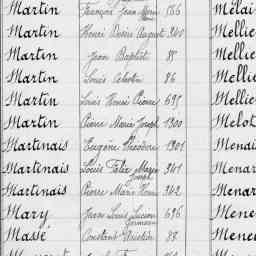 Martin François Jean Marie 166 Mélai
Martin Henri Désiré August 340 Mellie
Martin Jean Baptist 85 Mellie
Martin Louis Célestin 86 Mellie
Martin Louis Henri Pierre 695 Mellie
Martin Pierre Marie Joseph 1300 Melot
Martinais Eugène Théodore 1301 Menai
Martinais Louis Félix Marie Joseph 341 Menar
Martinais Pierre Marie 342 Menar
Mary Jean Louis Lucien Germain 696 Mene
Massé Constant 88 Mene